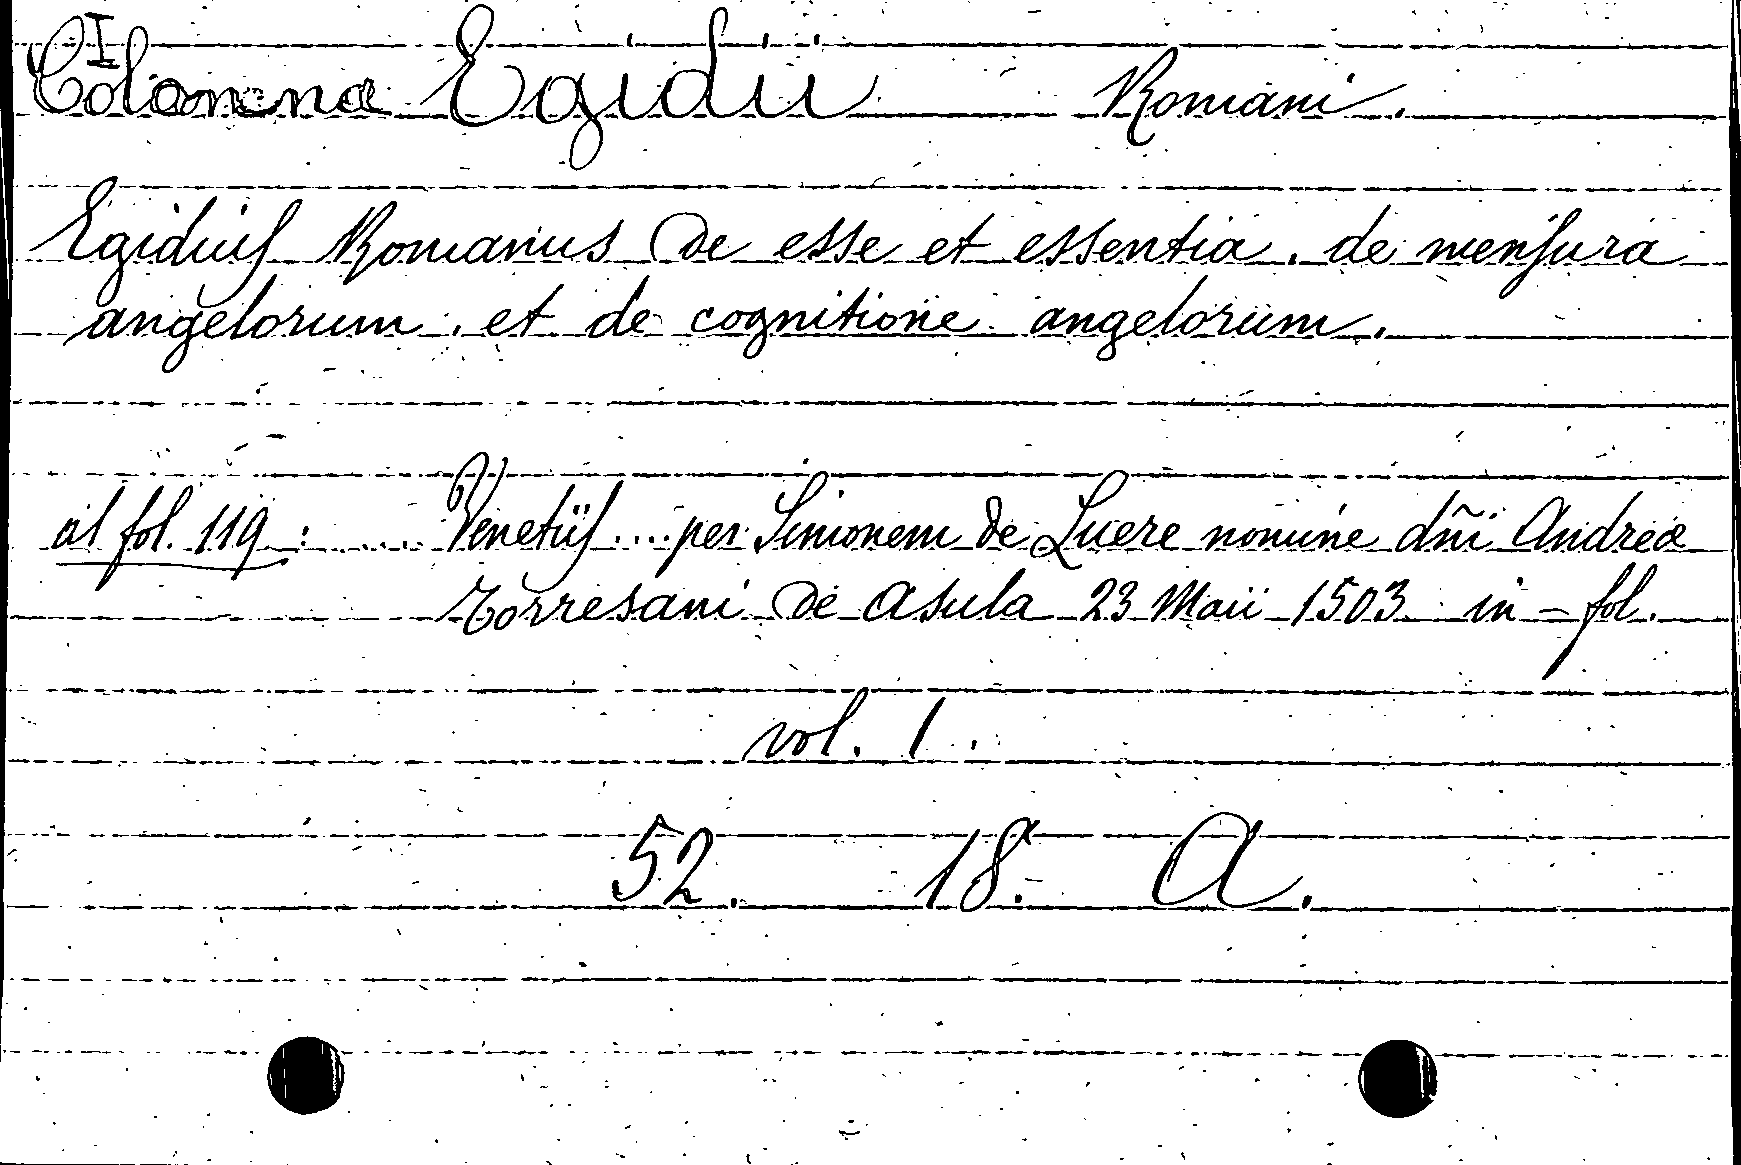 I
Colonna Egidii Romani.
Egidius Romanus De esse et essentia. de mensura
angelorum. et de cognitione angelorum.
al fol. 119 : .... Venetiis .... per Simonem de Luere nomine dñi Andreæ
Torresani de Asula 23 Maii 1503 in - fol.
vol. 1.
52. 18. A.